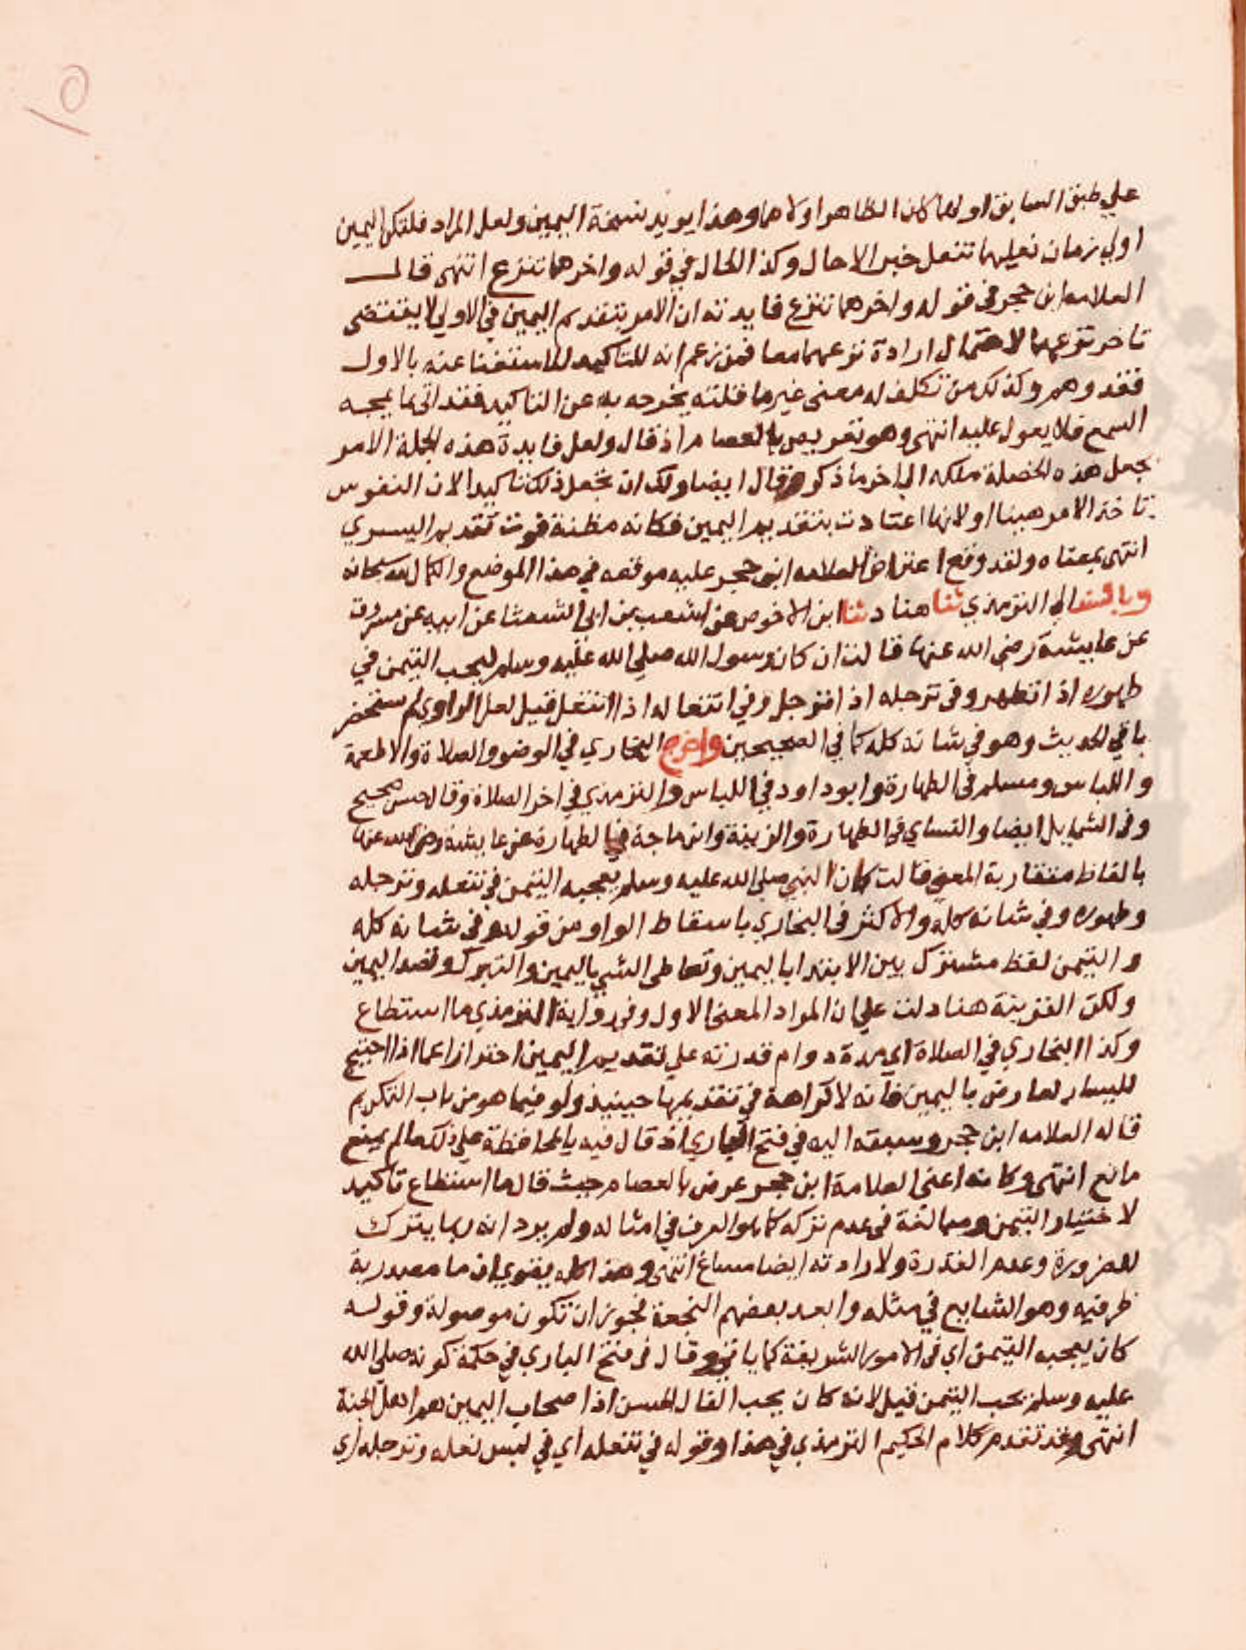 علي طبق السابق اولهما كان الظاهر اولاهما وهذا يويد نسخة اليمين ولعل المراد فلتكن اليمين
اولي زمان نعليهما تنعل خبر الاحال وكذا الحال في قوله واخرهما تنزع انتهى قال
العلامه ابن حجر في قوله واخرهما تنزع فايدته ان الامر بتقديم اليمين في الاولي لا يقتضى
تاخر نزعهما لاحتمال ارادة نزعهما معا فمن زعم انه للتاكيد للاستغنا عنه بالاول
فقد وهم وكذلك من تكلف له معنى غير ما قلته يخرجه به عن التاكيد فقد اتى بما يمجه
السمع فلا يعول عليه انتهى وهو تعريض بالعصام اذ قال ولعل فايدة هذه الجملة الامر
بجعل هذه الخصلة ملكه الي اخر ما ذكره وقال ايضا ولك ان تجعل ذلك تاكيدا لان النفوس
تاخذ الامر هينا اولانها اعتادت بتقديم اليمين فكانه مظنة فوت تقديم اليسري
انتهى بمعناه ولقد وقع اعتراض العلامه ابن حجر عليه موقعه في هذا الموضع والكمال لله سبحانه
وبالسند الي الترمذي ثنا هناد ثنا ابن الاخوص عن اشعب بن ابي الشعثا عن ابيه عن مسروق
عن عايشة رضي الله عنها قالت ان كان رسول الله صلي الله عليه وسلم ليحب التيمن في
طهوره اذا تطهر وفي ترجله اذا ترجل وفي انتعاله اذا انتعل قيل لعل الراوي لم يستحضر
باقي الحديث وهو في شانه كله كما في الصحيحين واخرج البخاري في الوضو والصلاة والاطعمة
واللباس ومسلم في الطهارة وابو داود في اللباس والترمذي في اخر الصلاة وقال حسن صحيح
وفي الشمايل ايضا والنساي في الطهارة والزينة وابن ماجة في الطهارة عن عايشة رضي الله عنها
بالفاظ متقاربة المعني قالت كان النبي صلي الله عليه وسلم يعجبه التيمن في تنعله وترجله
وطهوره وفي شانه كله والاكثر في البخاري باسقاط الواو من قوله وفي شانه كله
والتيمن لفظ مشترك بين الابتدا باليمين وتعاطي الشي باليمين والتبرك وقصد اليمين
ولكن القرينة هنا دلت علي ان المراد المعنى الاول وفي رواية الترمذي ما استطاع
وكذا البخاري في الصلاة اي مدة دوام قدرته علي تقديم اليمين احترازا عما اذا احتيج
لليسار لعارض باليمين فانه لا كراهة في تقديمها حينيذ ولو فيما هو من باب التكريم
قاله العلامه ابن حجر وسبقه اليه في فتح الباري اذ قال فيه بالمحافظة علي ذلك ما لم يمنع
مانع انتهى وكانه اعني العلامة ابن حجر عرض بالعصام حيث قال ما استطاع تاكيد
لاختيار التيمن ومبالغة في عدم تركه كما هو العرف في امثاله ولم يرد انه ربما يترك
لضرورة وعدم القدرة ولارادته ايضا مساغ انتهى وهذا كله يقوي ان ما مصدرية
ظرفيه وهو الشايع في مثله وابعد بعضهم النجعة فجوز ان تكون موصولة وقوله
كان يعجبه التيمن اي في الامور الشريفة كما ياتي وقال في فتح الباري في حكمة كونه صلي الله
عليه وسلم يحب التيمن قيل لانه كان يحب الفال الحسن اذ اصحاب اليمين هم اهل الجنة
انتهى وقد تقدم كلام الحكيم الترمذي في هذا وقوله في تنعله اي في لبس نعله وترجله اي